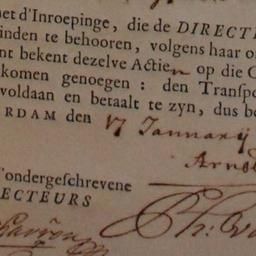 et d'Inroepinge, die de DIRECTE
inden te behooren, volgens haar o
nt bekent dezelve Actien op die C
komen genoegen: den Transpo
voldaan en betaalt te zyn, dus be
RDAM den 17 Januarij
Arno
ondergeschrevene
ECTEURS